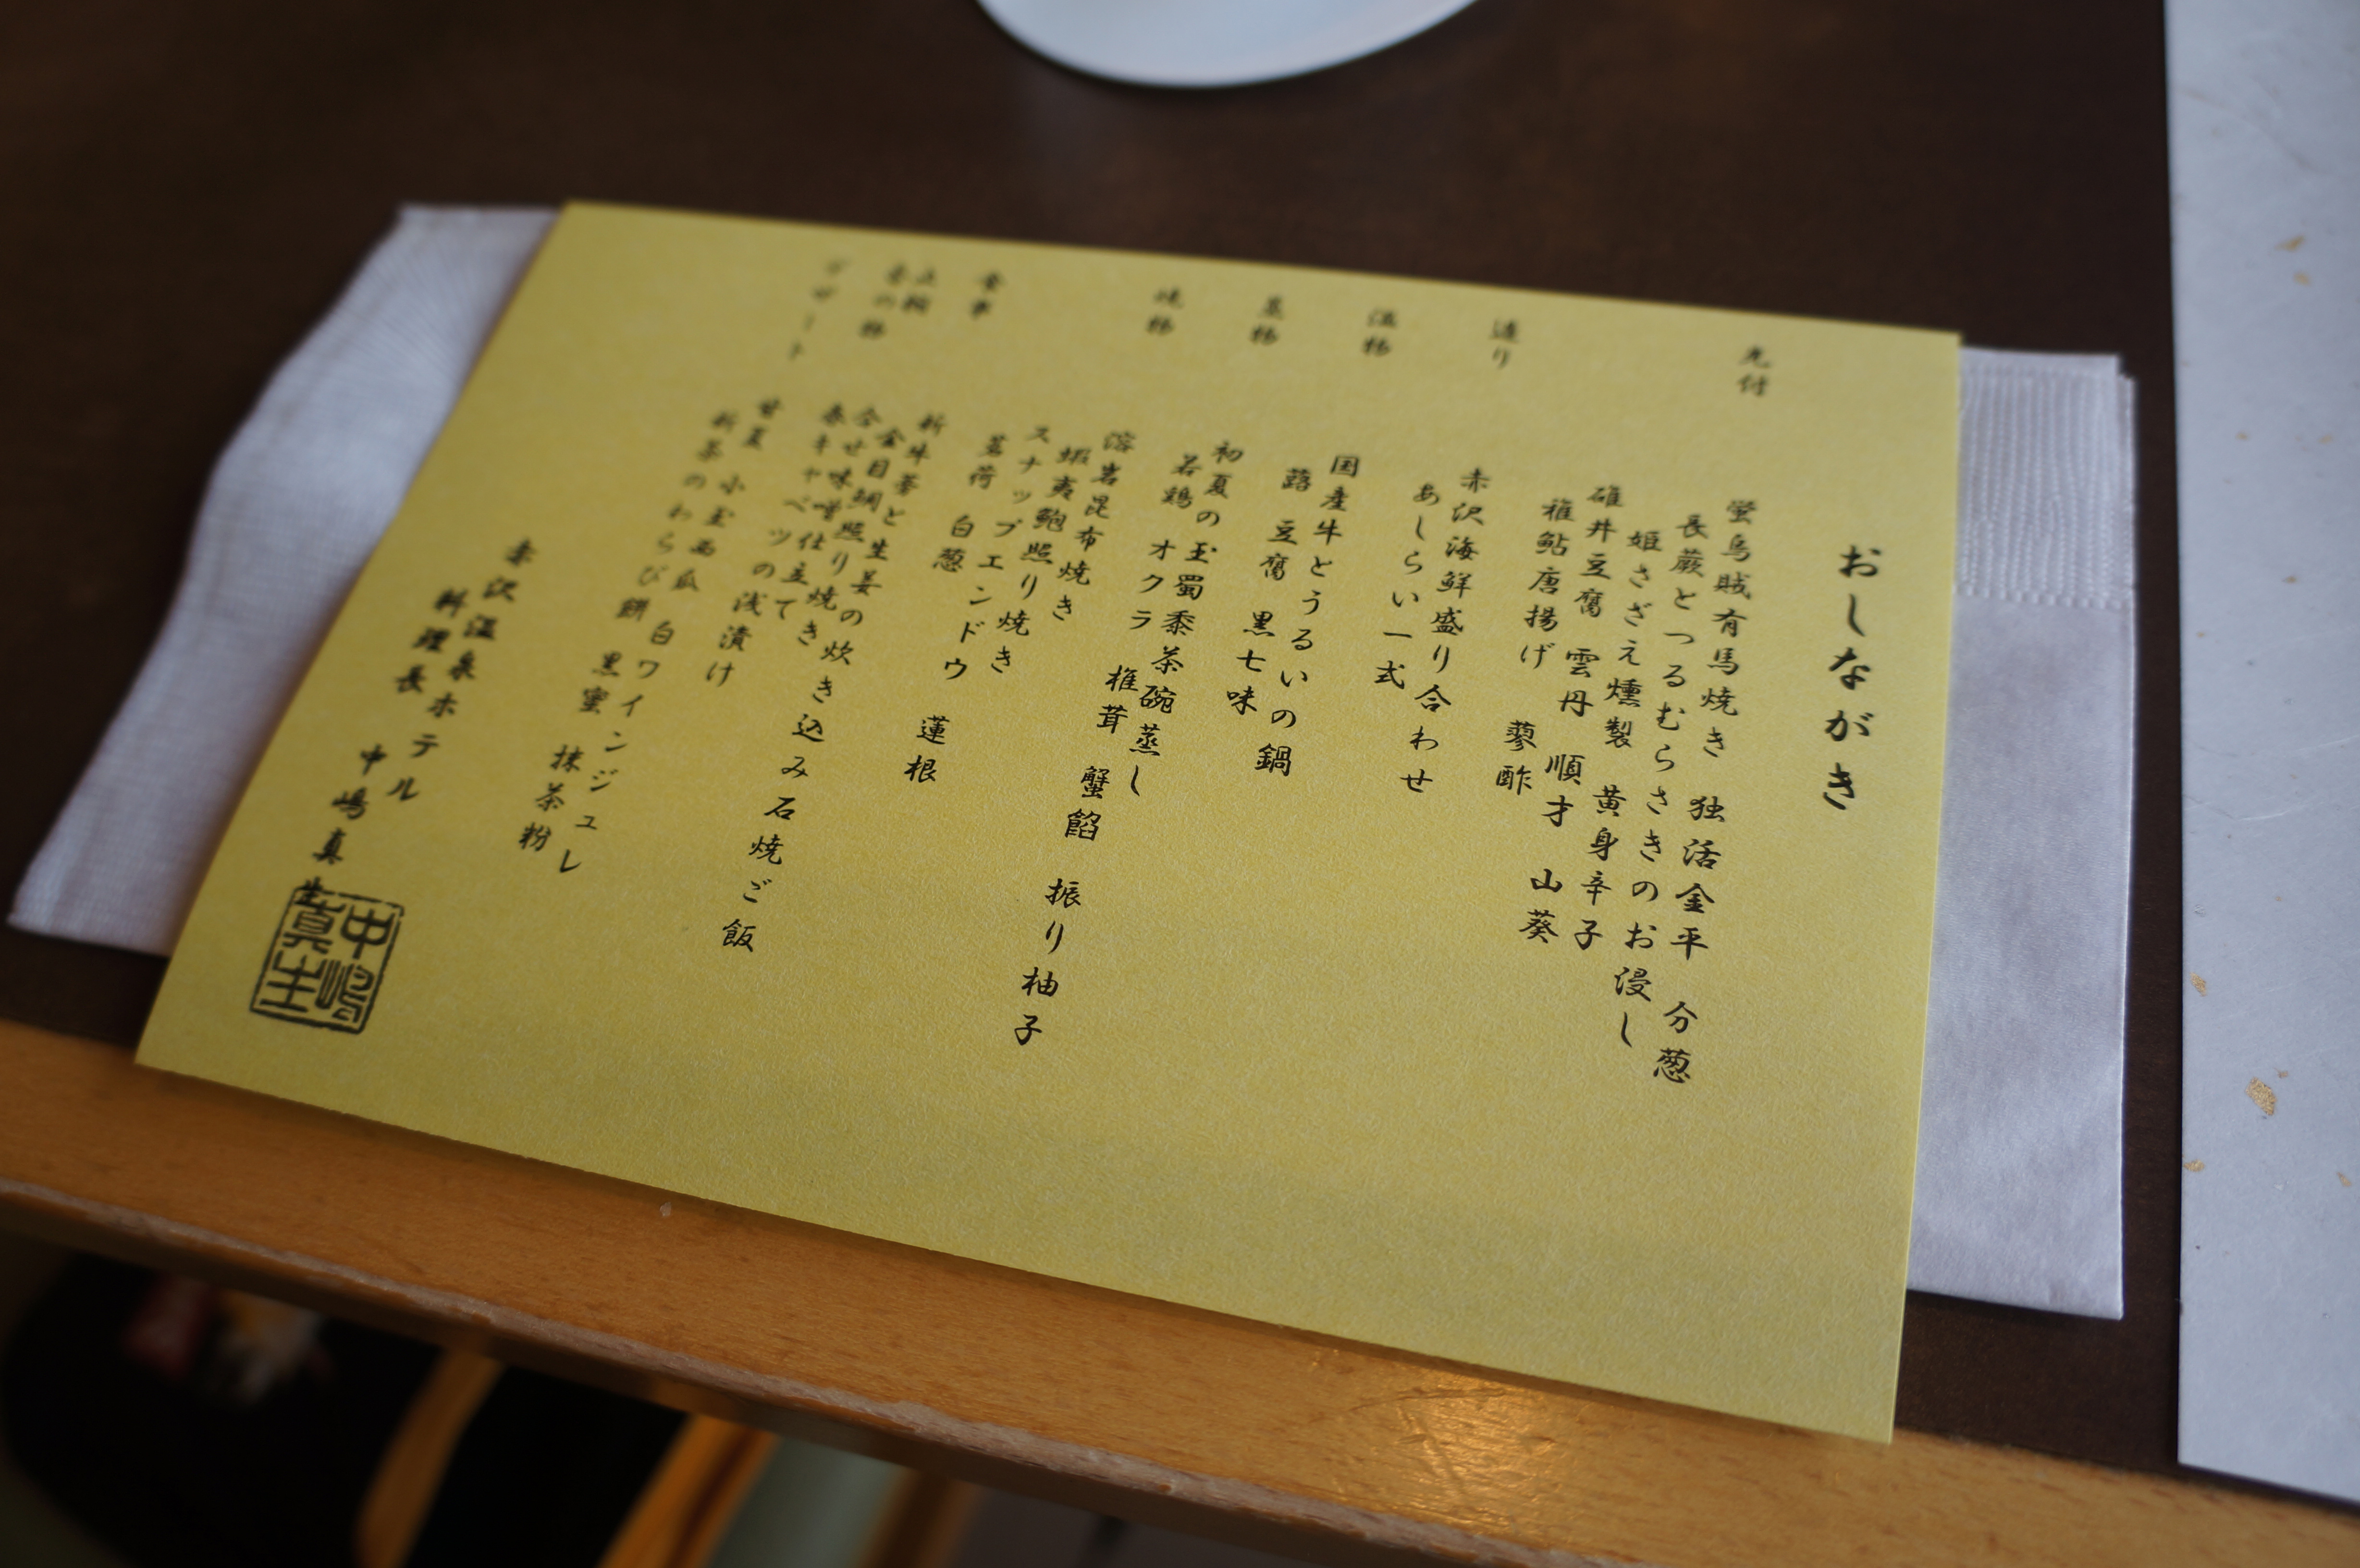 おしながき
先付
蛍烏賊有馬焼き 独活金平 分葱
長蕨とつるむらさきのお浸し
姫さざえ燻製 黄身辛子
碓井豆腐 雲丹 順才 山葵
稚鮎唐揚げ 蓼酢
造り
赤沢海鮮盛り合わせ
あしらい一式
温物
国産牛とうるいの鍋
蕗 豆腐 黒七味
蒸物
初夏の玉蜀黍茶碗蒸し
若鶏 オクラ 椎茸 蟹餡 振り柚子
焼物
溶岩昆布焼き
蝦夷鮑照り焼き
スナップエンドウ 蓮根
茗荷 白葱
食事
新牛蒡と生姜の炊き込み石焼ご飯
金目鯛照り焼き
止椀
合せ味噌仕立て
香の物
春キャベツの浅漬け
デザート
甘夏 小玉西瓜 白ワインジュレ
新茶のわらび餅 黒蜜 抹茶粉
赤沢温泉ホテル
料理長 中嶋真生
中嶋真生